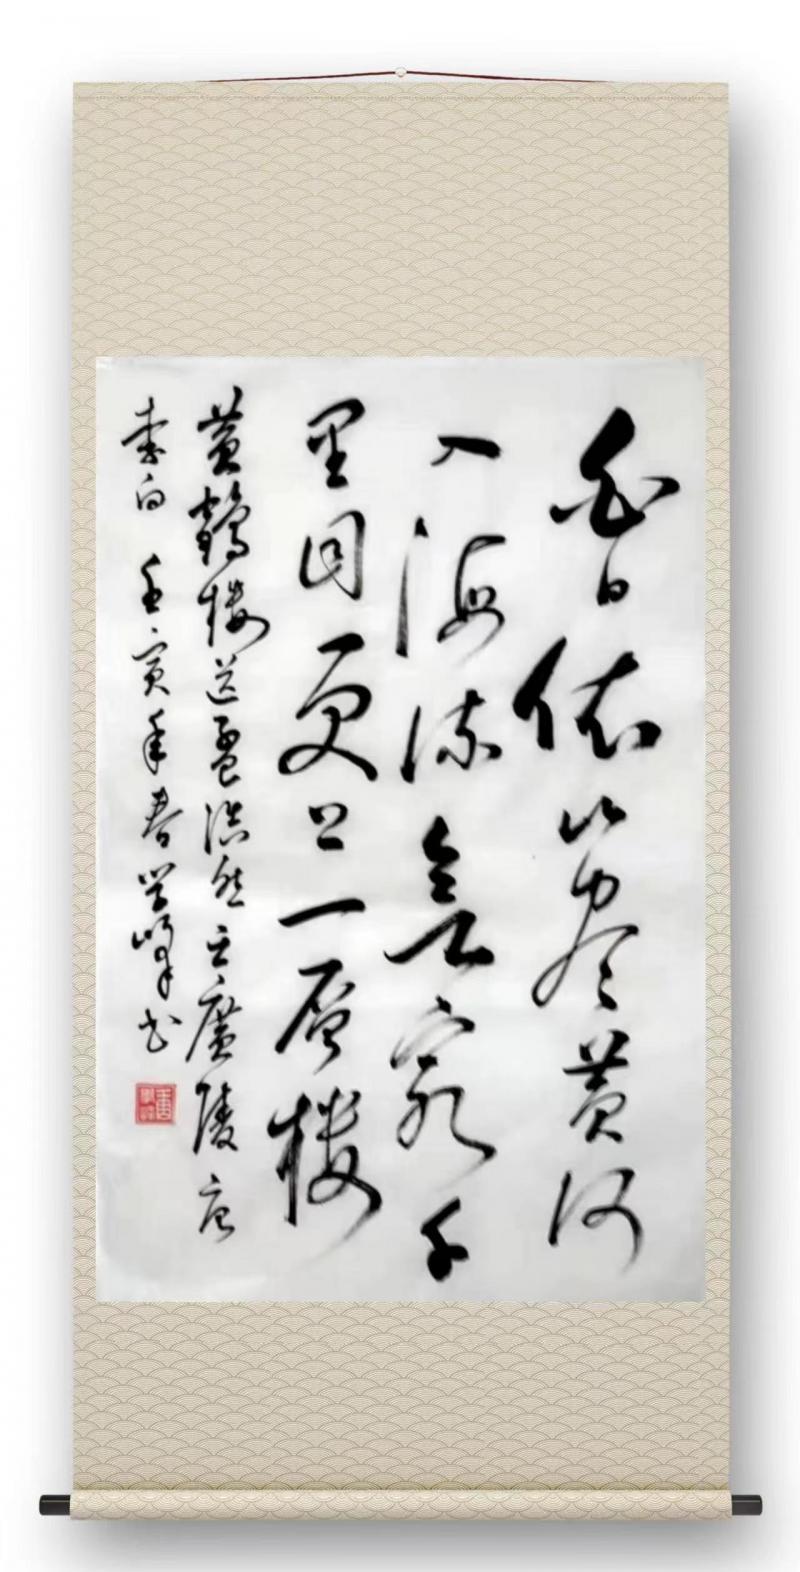 白日依山尽黄河
入海流欲穷千
里目更上一層楼
黄鶴楼送孟浩然之廣陵唐
李白 壬寅年春学峰书